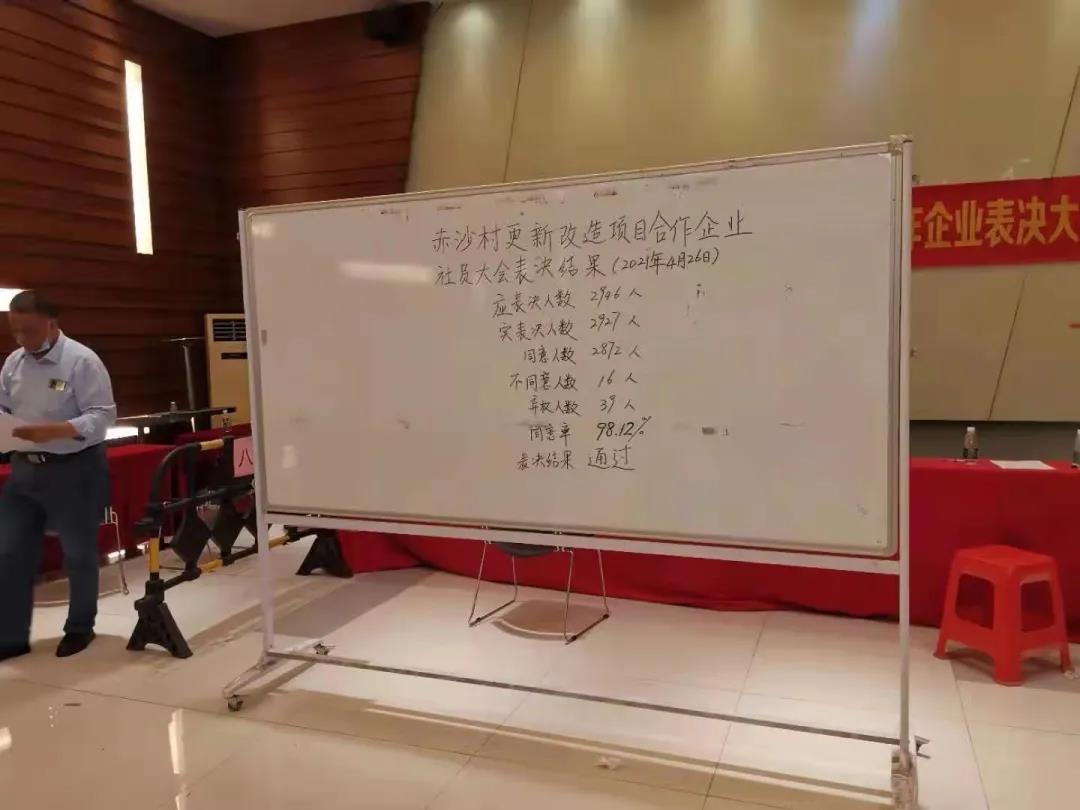 赤沙村更新改造项目合作企业
社员大会表决结果(2021年4月26日)
应表决人数 2946人
实表决人数 2927人
同意人数 2872人
不同意人数 16人
弃权人数 39人
同意率 98.12%
表决结果 通过
企业表决大
八